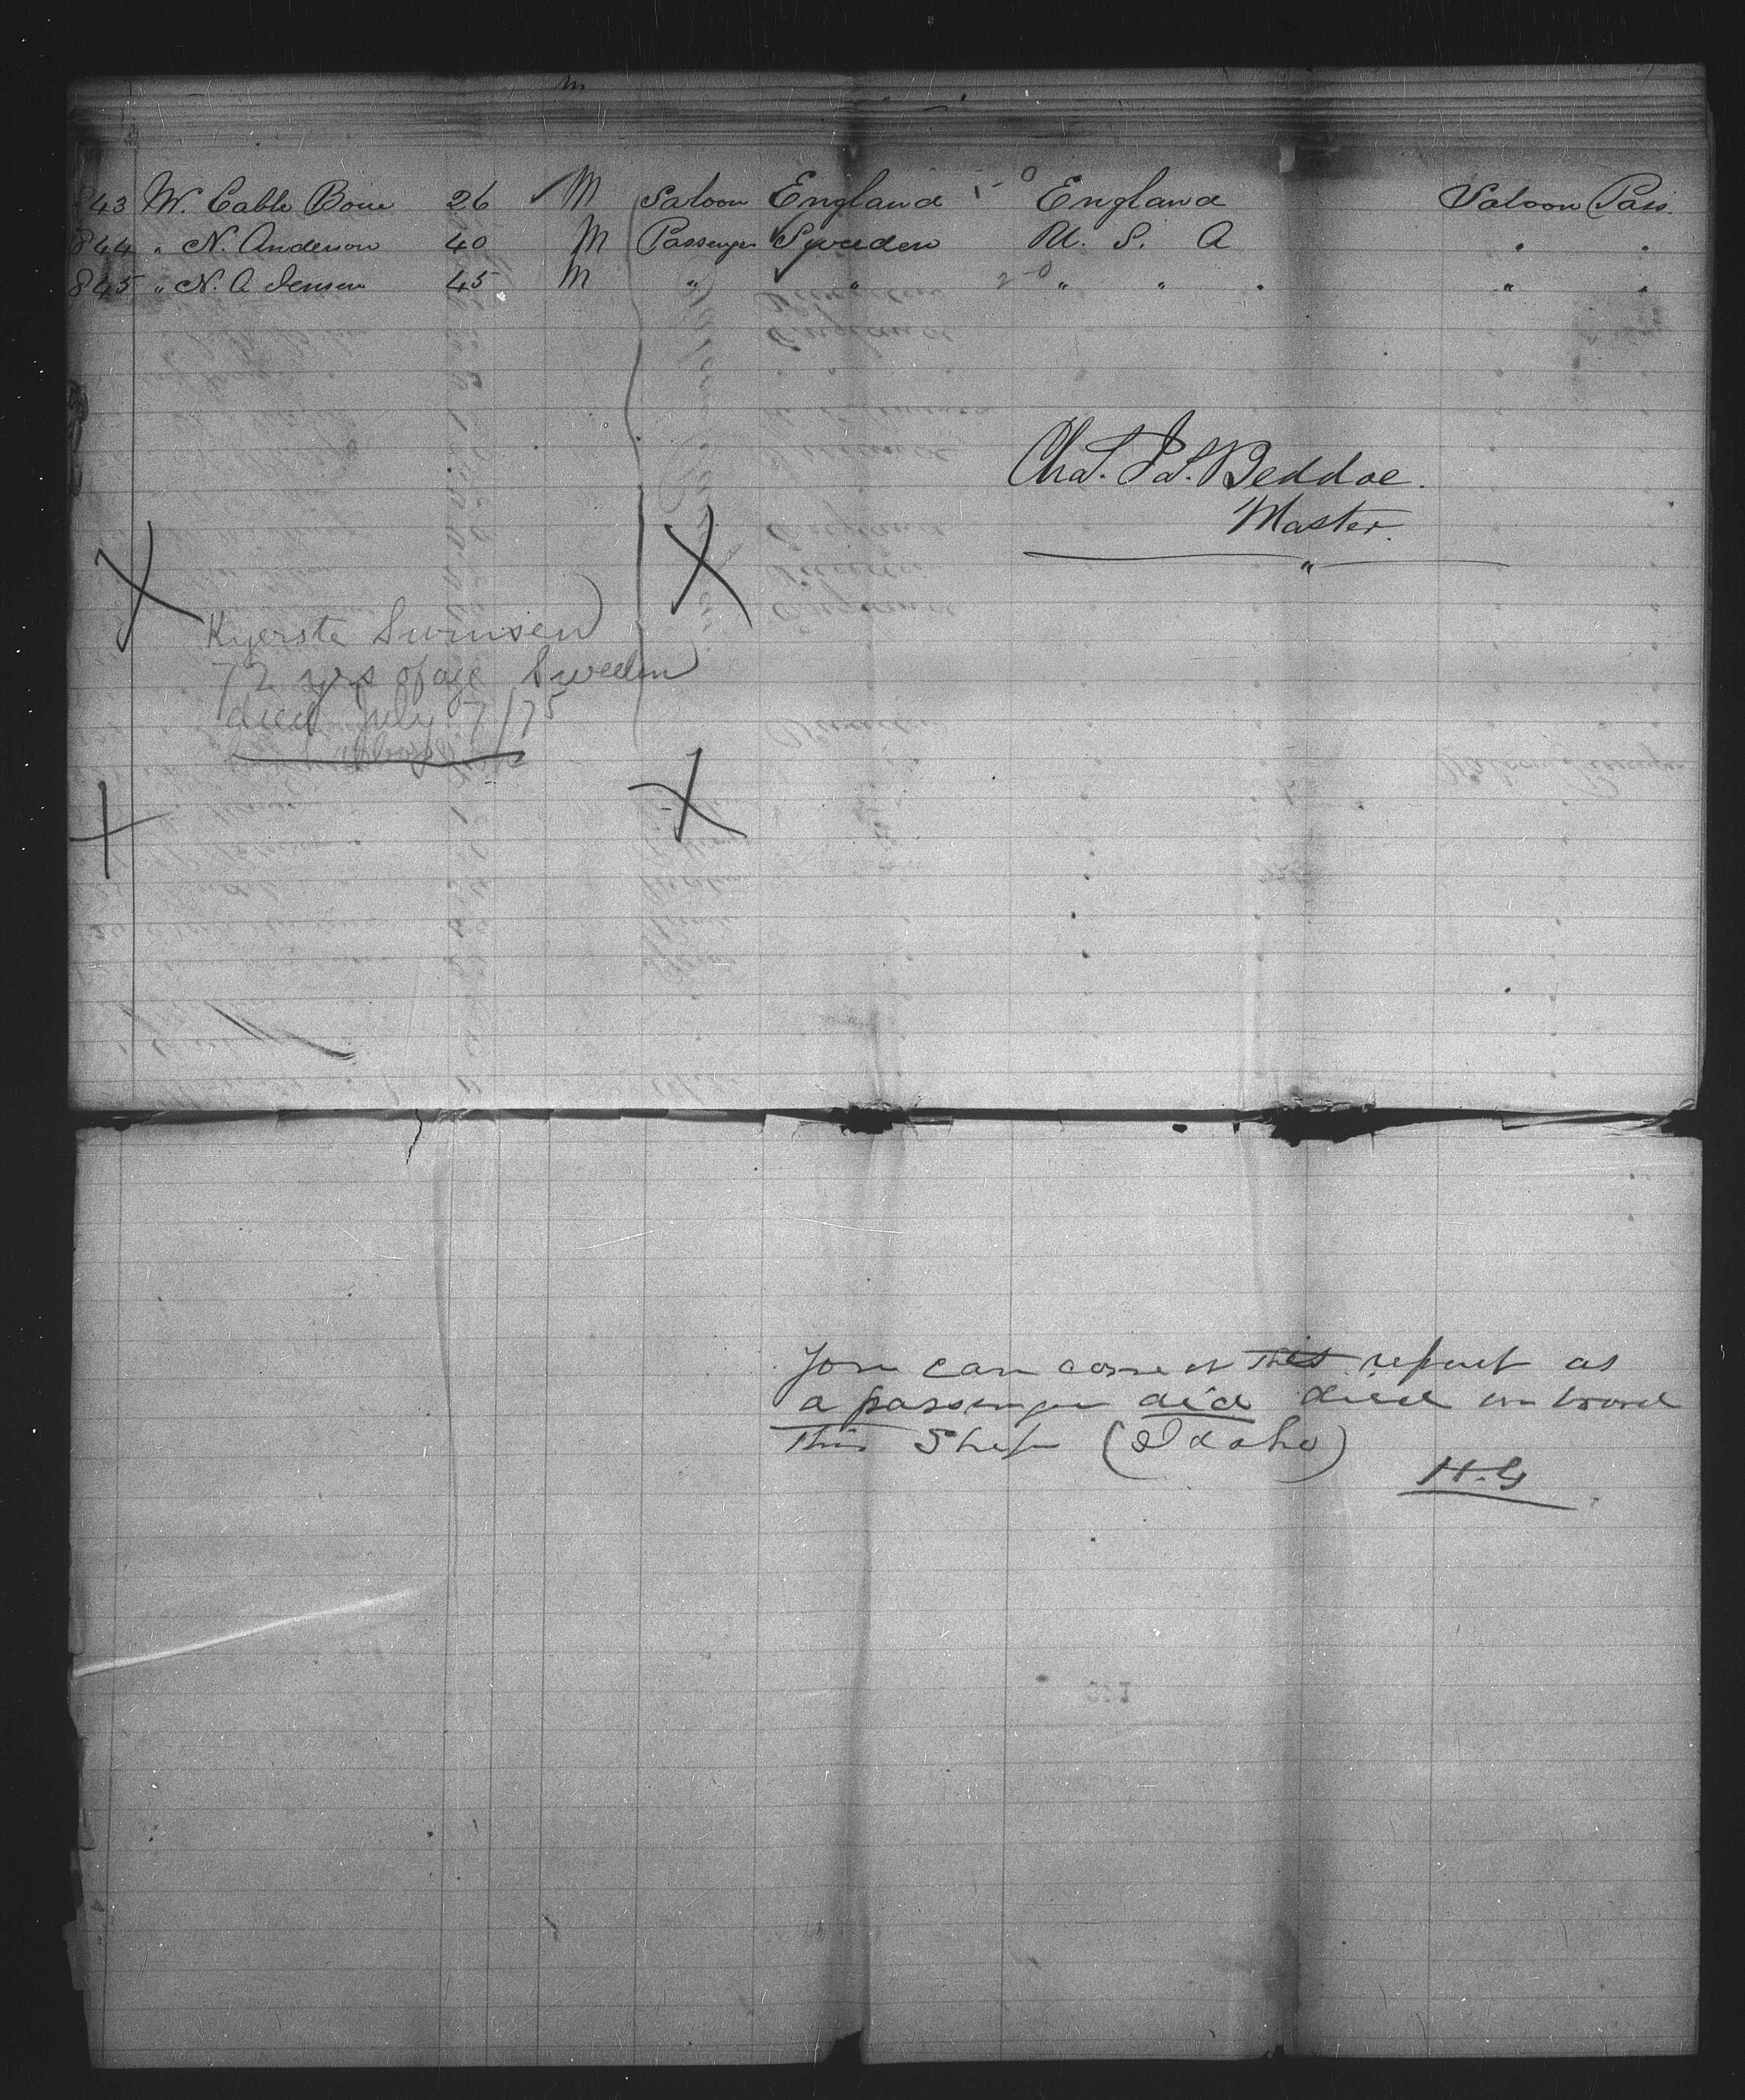 m
843 W. Cable Bone 26 M Saloon England England Saloon Pass.
844 " N. Anderson 40 M Passenger Sweden U. S. A " "
845 " N. A Jensen 45 M " " " " " " "
Chas. Beddoe.
Master.
Kjerste Swensen
72 yrs of age Sweden
died July 7/75
You can correct this report as
a passenger did died on board
this Ship (Idaho)
H.G